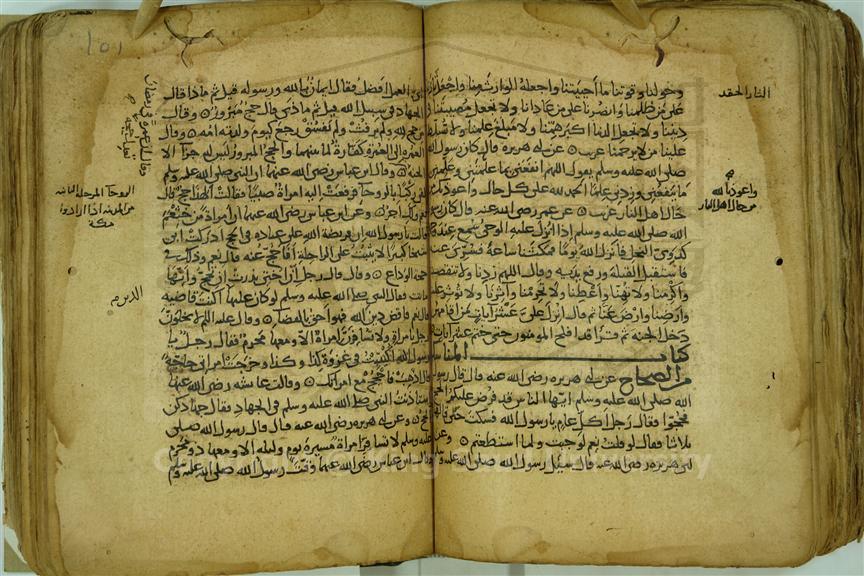 وحولنا وقوتنا ما أحييتنا واجعله الوارث منا واجعل
على من ظلمنا وانصرنا على من عادانا ولا تجعل مصيبتنا
ديننا ولا تجعل الدنيا أكبر همنا ولا مبلغ علمنا ولا تسلط
علينا من لا يرحمنا غريب عن أبي هريرة قال كان رسول الله
صلى الله عليه وسلم يقول اللهم انفعني بما علمتني وعلمني
ما ينفعني وزدني علما الحمد لله على كل حال وأعوذ
حال أهل النار غريب عن عمر رضي الله عنه قال كان رسول
الله صلى الله عليه وسلم إذا أنزل عليه الوحي سمع عند
كدوي النحل فأنزل الله يوما فمكثنا ساعة فسري عنه
فاستقبل القبلة ورفع يديه وقال اللهم زدنا ولا تنقصنا
وأكرمنا ولا تهنا وأعطنا ولا تحرمنا وآثرنا ولا تؤثر
وأرضنا وارض عنا ثم قال أنزل علي عشر آيات من أقامهن
دخل الجنة ثم قرأ قد أفلح المؤمنون حتى ختم عشر آيات
كتاب المناسك
من الصحاح عن أبي هريره رضي الله عنه قال قال رسول
الله صلى الله عليه وسلم أيها الناس قد فرض عليكم الحج
فحجوا فقال رجل أكل عام يا رسول الله فسكت حتى قالها
ثلاثا فقال لو قلت نعم لوجبت ولما استطعتم وعن
أبي هريره رضي الله عنه قال سئل رسول الله صلى الله عليه وسلم
الثأر الحقد
وأعوذ بالله
من حال أهل النار
أي العمل أفضل فقال إيمان بالله ورسوله قيل ثم ماذا قال
الجهاد في سبيل الله قيل ثم ماذا قال حج مبرور وقال
من حج لله ولم يرفث ولم يفسق رجع كيوم ولدته أمه وقال
العمرة إلى العمرة كفارة لما بينهما والحج المبرور ليس له جزاء إلا
الجنة عن ابن عباس رضي الله عنهما أن النبي صلى الله عليه وسلم
ركبا بالروحا فرفعت إليه امرأة صبيا فقالت ألهذا حج قال
نعم ولك أجر وعن ابن عباس رضي الله عنهما أن امرأة من خثعم
قالت يا رسول الله إن فريضة الله على عباده في الحج أدركت أبي
شيخا كبيرا لا يثبت على الراحلة أفأحج عنه قال نعم وذلك في
حجة الوداع وقال قال رجل إن أختي نذرت أن تحج وإنها
ماتت فقال النبي صلى الله عليه وسلم لو كان عليها أكنت قاضيه
قال نعم قال فاقض دين الله فهو أحق بالقضاء وقال عليه السلام لا يخلون
رجل بامرأة ولا تسافرن امرأة إلا ومعها محرم فقال رجل يا
رسول الله اكتتبت في غزوة كذا وكذا وخرجت امرأتي حاجة
قال اذهب فاحجج مع امرأتك وقالت عائشة رضي الله عنها
استأذنت النبي صلى الله عليه وسلم في الجهاد فقال جهادكن
الحج وعن أبي هريره رضي الله عنه قال قال رسول الله صلى
الله عليه وسلم لا تسافر امرأة مسيرة يوم وليلة إلا ومعها ذو محرم
وقال ابن عباس رضي الله عنهما وقت رسول الله صلى الله عليه وسلم